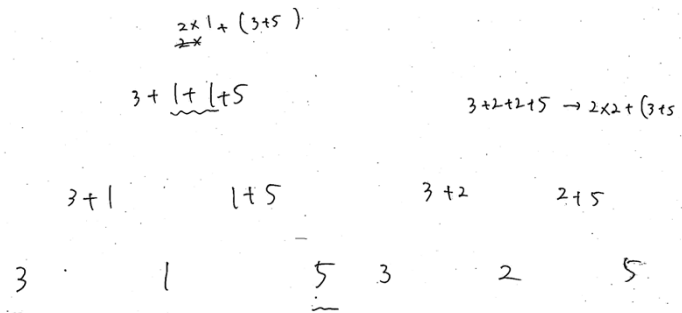 2×1+(3+5)
2×
3+1+1+5
3+2+2+5 → 2×2+(3+5
3+1 1+5 3+2 2+5
3 1 5 3 2 5